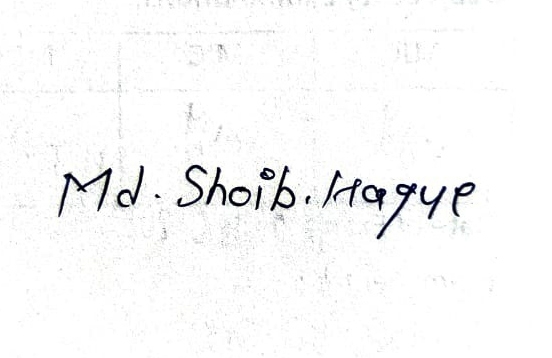 Md. Shoib. Haque